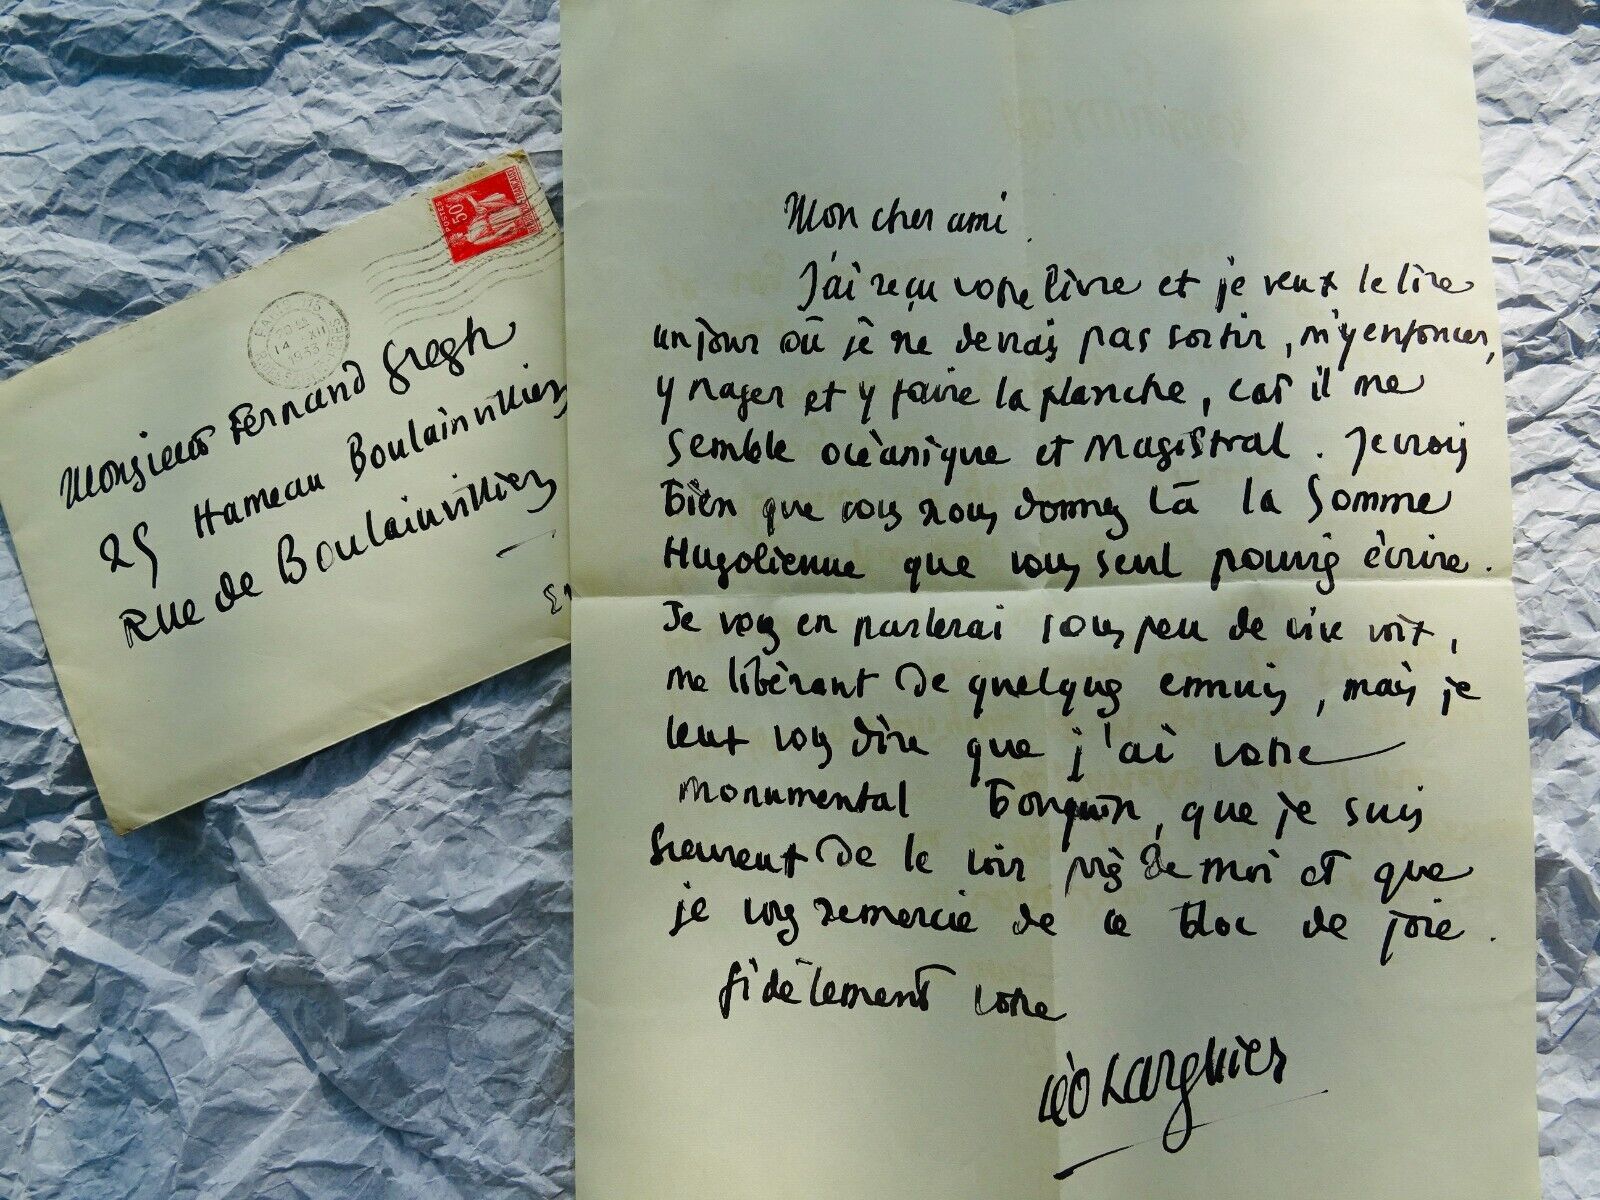 Monsieur Fernand Gregh
25 Hameau Boulainvilliers
Rue de Boulainvilliers
POSTES
50c
14 XII
1933
Mon cher ami.
J'ai reçu votre livre et je veux le lire
un jour où je ne devrais pas sortir, m'y enfoncer,
y nager et y faire la planche, car il me
semble océanique et Magistral. Je crois
bien que vous nous donnez là la Somme
Hugolienne que vous seul pouviez écrire.
Je vous en parlerai sous peu de vive voix,
me libérant de quelques ennuis, mais je
veux vous dire que j'ai votre
monumental bouquin, que je suis
heureux de le voir près de moi et que
je vous remercie de ce bloc de joie.
fidèlement votre
Léo Larguier